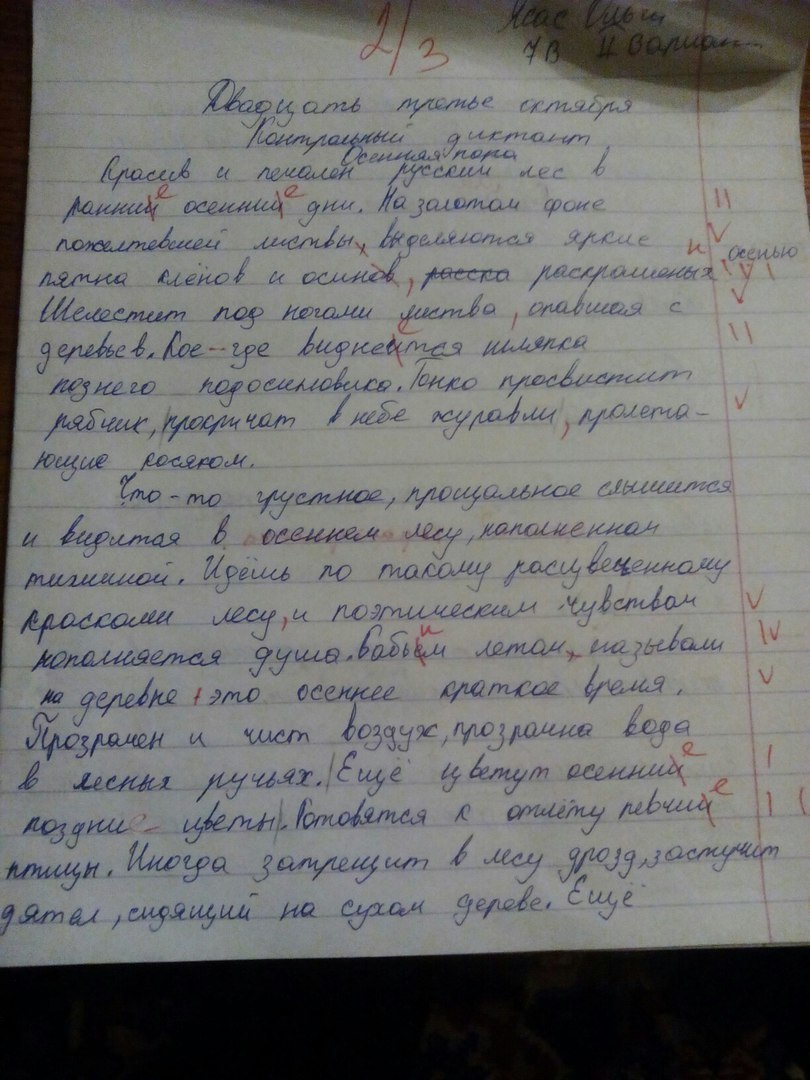 2/3
7В II Вариант
Двадцать третье октября
Контрольный диктант
Осенняя пора
Красив и печален русский лес в
ранний осенний дни. На золотом фоне
пожелтевшей листвы, выделяются яркие
пятна клёнов и осинов, расска раскрашеных осенью
Шелестит под ногами листва, опавшая с
деревьев. Кое-где виднеится шляпка
позднего подосиновика. Тонко просвистит
рябчик, прокричат в небе журавли, пролета-
ющие косяком.
Что-то грустное, прощальное слышится
и видитая в осеннем лесу, наполненном
тишиной. Идёшь по такому расцвеченному
красками лесу, и поэтическим чувством
наполняется душа. Бабьем летом, называли
на деревне это осеннее краткое время.
Прозрачен и чист воздух, прозрачна вода
в лесных ручьях. Ещё цветут осенний
поздние цветы. Готовятся к отлёту певчий
птицы. Иногда затрещит в лесу дрозд, застучит
дятел, сидящий на сухом дереве. Ещё